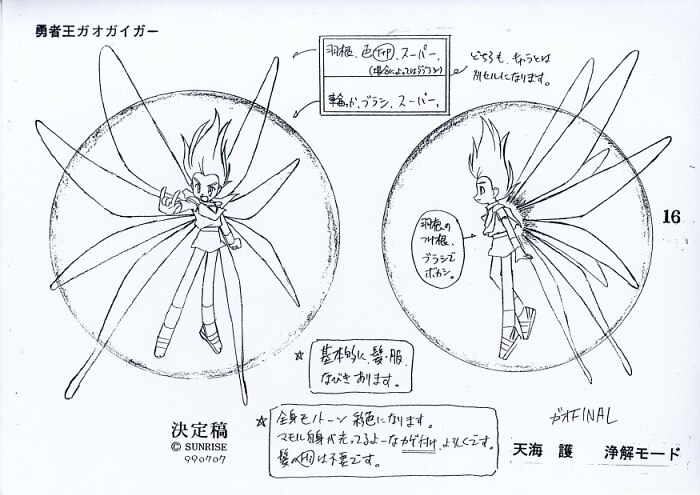 勇者王ガオガイガー
羽根、色TP、スーパー、
(場合によってはブラシ)
輪っか、ブラシ、スーパー、
どちらも、キャラとは
別セルになります。
16
羽根の
つけ根、
ブラシで
ボカシ。
☆ 基本的に、髪・服、
なびきあります。
☆ 全身モノトーン 彩色になります。
マモル自身が光ってるよーなカゲ付け、よろしくです。
髪の は不要です。
決定稿
© SUNRISE
990707
ガオFINAL
天海 護 浄解モード